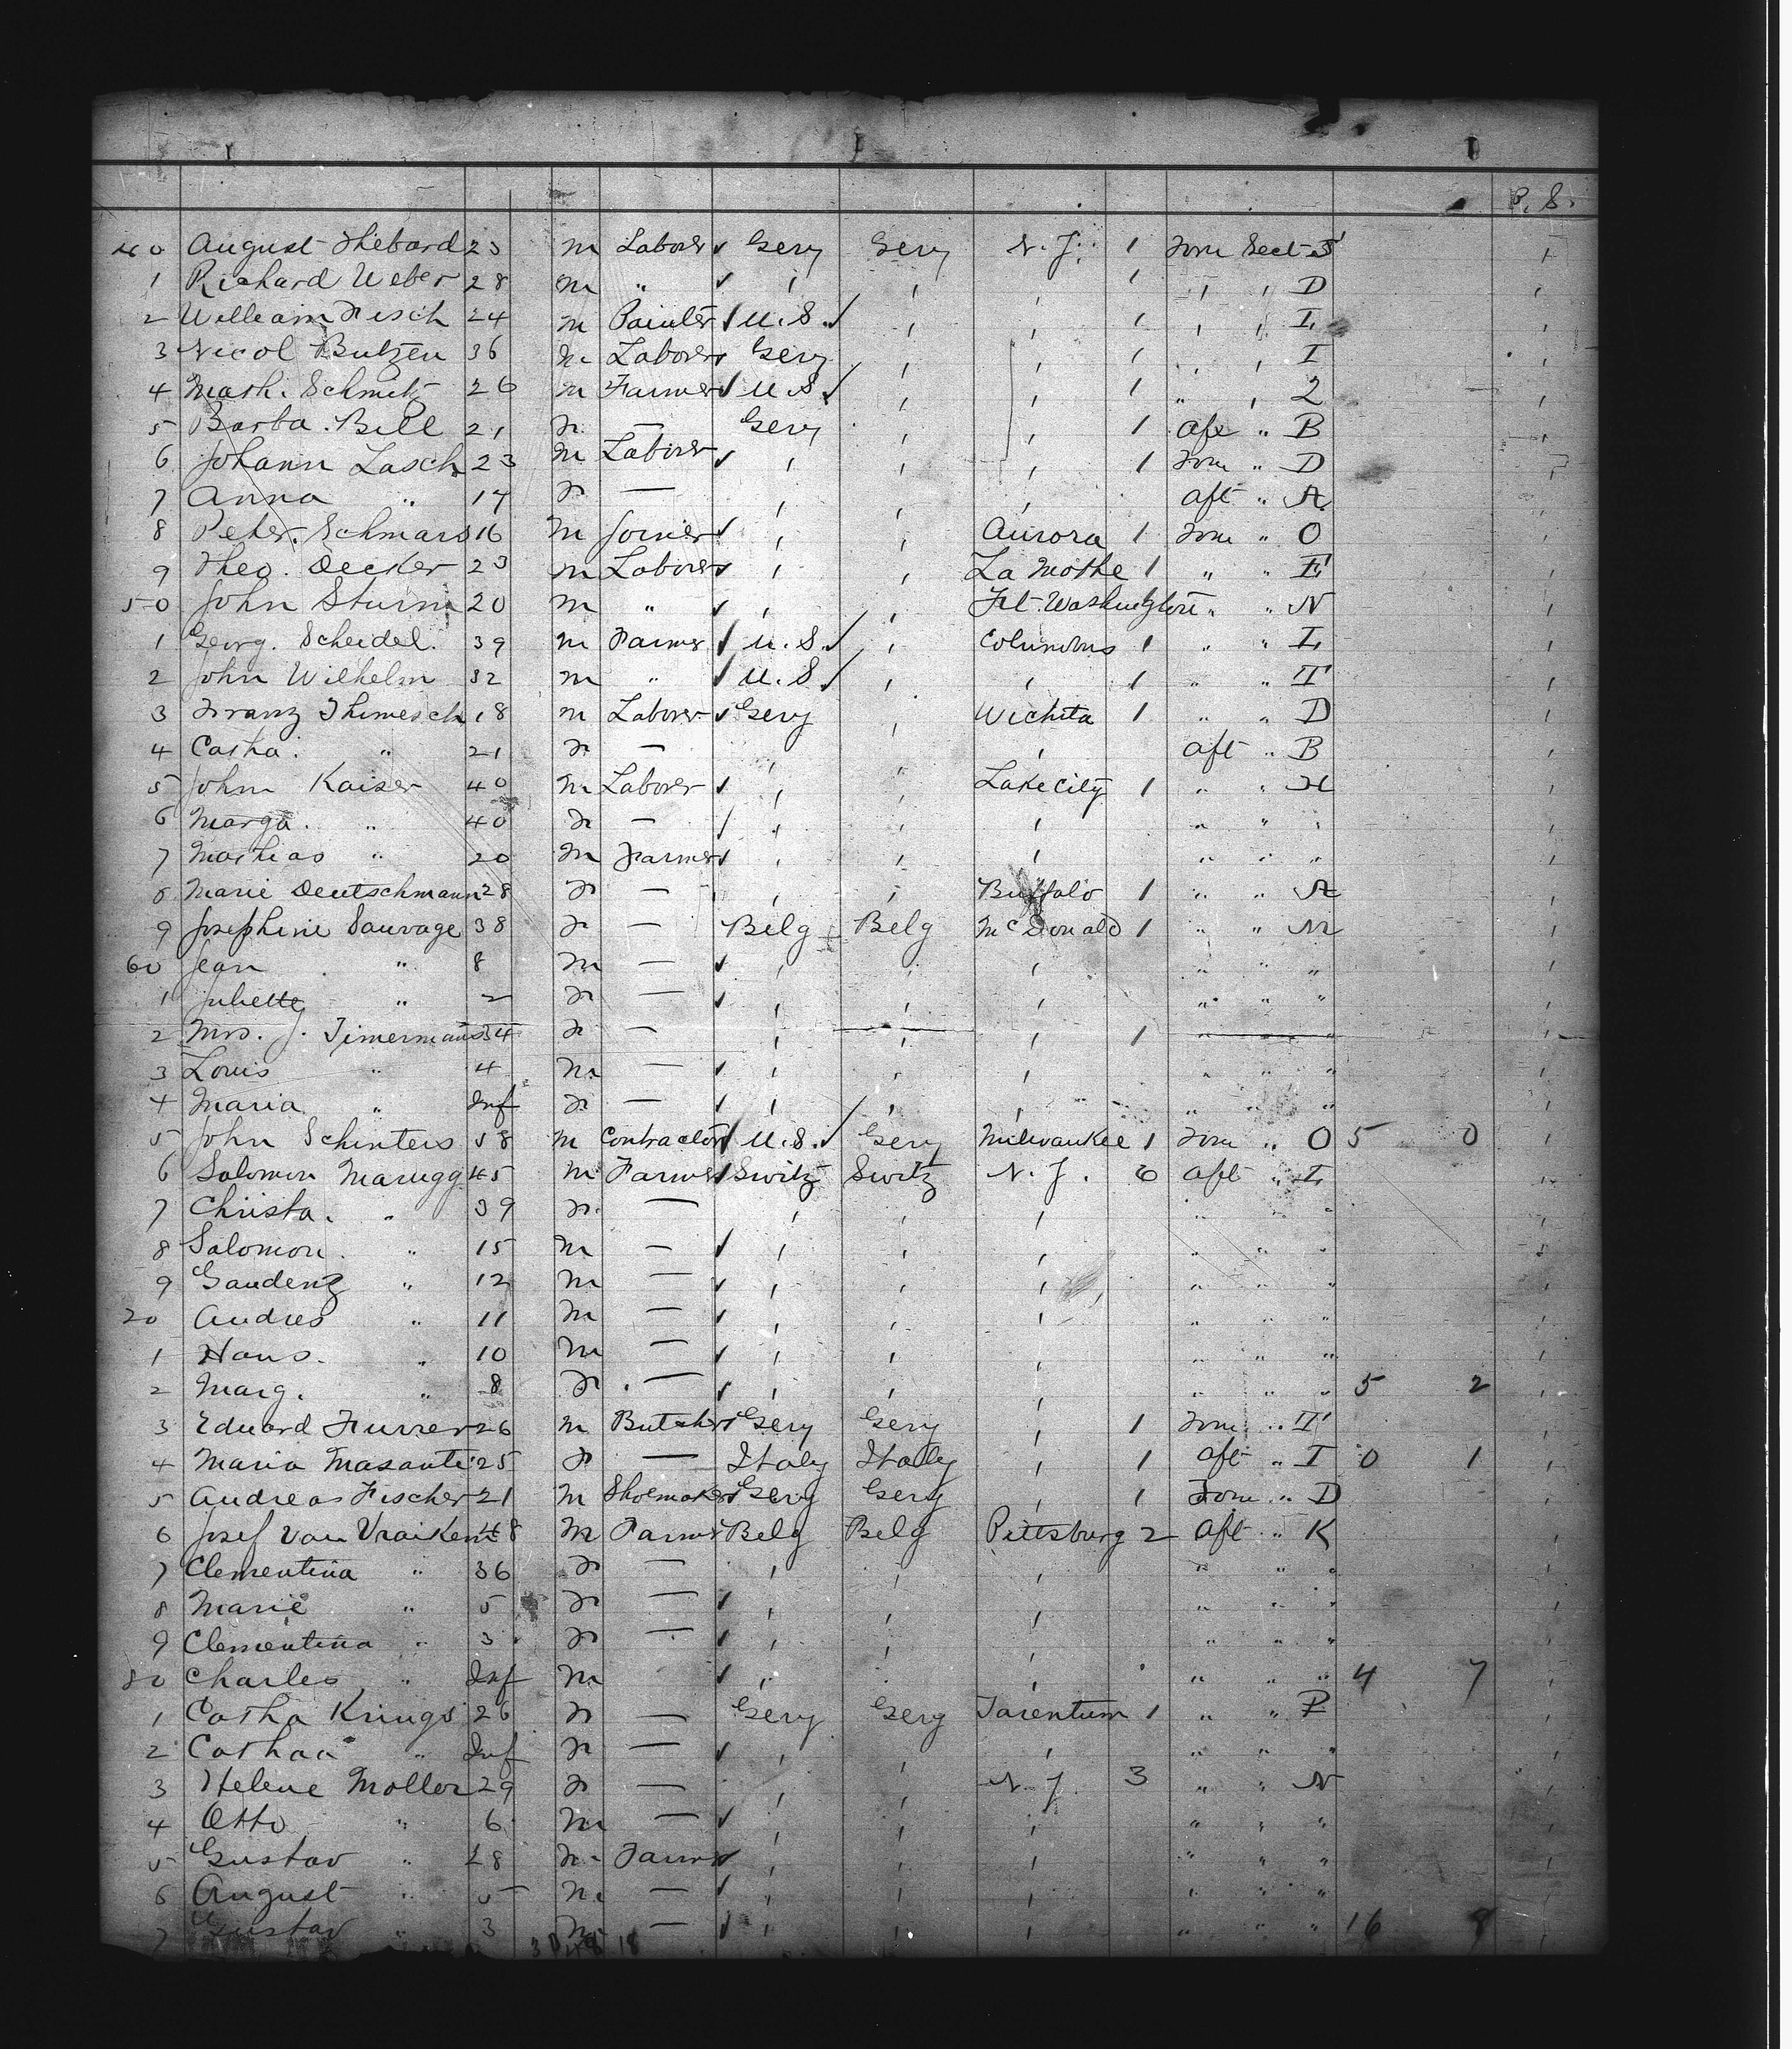 P. S.
40 August Thebard 23 m Laborer Gery Gery N. J. 1 Forw Sect
1 Richard Weber 28 m " 1 " " D
2 William Fesch 24 m Painter U.S. 1 " " I
3 Nicol Butzen 36 m Laborer Gery 1 " " I
4 Math. Schmitz 26 m Farmer U.S. 1 " " 2
5 Barba. Bill 21 F — Gery 1 Aft " B
6 Johann Lasch 23 m Laborer 1 Forw " D
7 Anna " 17 F — aft " A
8 Peter. Schmars 16 m Joiner Aurora 1 Forw " O
9 Theo. Decker 23 m Laborer La Mothe 1 " " E
50 John Sturm 20 m " Ft. Washington " " N
1 Georg. Scheidel. 39 m Farmer U.S. Columbus 1 " " I
2 John Wilhelm 32 m " U.S. 1 " " H
3 Franz Thimesch 18 m Laborer Gery Wichita 1 " " D
4 Catha. " 21 F — aft " B
5 John Kaiser 40 m Laborer Lake City 1 " " H
6 Marga. " 40 F — " "
7 Mathias " 20 m Farmer " " "
8 Marie Deutschmann 28 F — Buffalo 1 " " A
9 Josephine Sauvage 38 F — Belg Belg McDonald 1 " " M
60 Jean " 8 m — " " "
1 Juliette " 2 F — " " "
2 Mrs. J. Timermans 34 F — 1 " "
3 Louis " 4 m — " " "
4 Maria " Inf F — " " "
5 John Schinters 58 m Contractor U.S. Gery Milwaukee 1 Forw " O 5 0
6 Solomon Marugg 45 m Farmer Switz Switz N. J. 6 Aft " I
7 Christa. " 39 F — " "
8 Salomon. " 15 m — " " "
9 Gaudenz " 12 m — " " "
70 Andres " 11 m — " " "
1 Hans. " 10 m — " " "
2 Marg. " 8 F — " " " 5 2
3 Eduard Furrer 26 m Butcher Gery Gery 1 Forw " H
4 Maria Masanti 25 F — Italy Italy 1 Aft " I 0 1
5 Andreas Fischer 21 m Shoemaker Gery Gery 1 Forw " D
6 Josef Van Vraiken 48 m Farmer Belg Belg Pittsburg 2 Aft " K
7 Clementina " 36 F — " " "
8 Marie " 5 F — " " "
9 Clementina " 3 F — " " "
80 Charles " Inf m " " " 4 7
1 Catha Krings 26 F — Gery Gery Tarentum 1 " " P
2 Cathaa " Inf F — " " "
3 Helene Moller 29 F — N. J. 3 " " N
4 Otto " 6 m — " " "
5 Gustav " 28 m Farmer " " "
6 August " 5 m — " " "
7 Gustav " 3 m — " " " 16 8
18